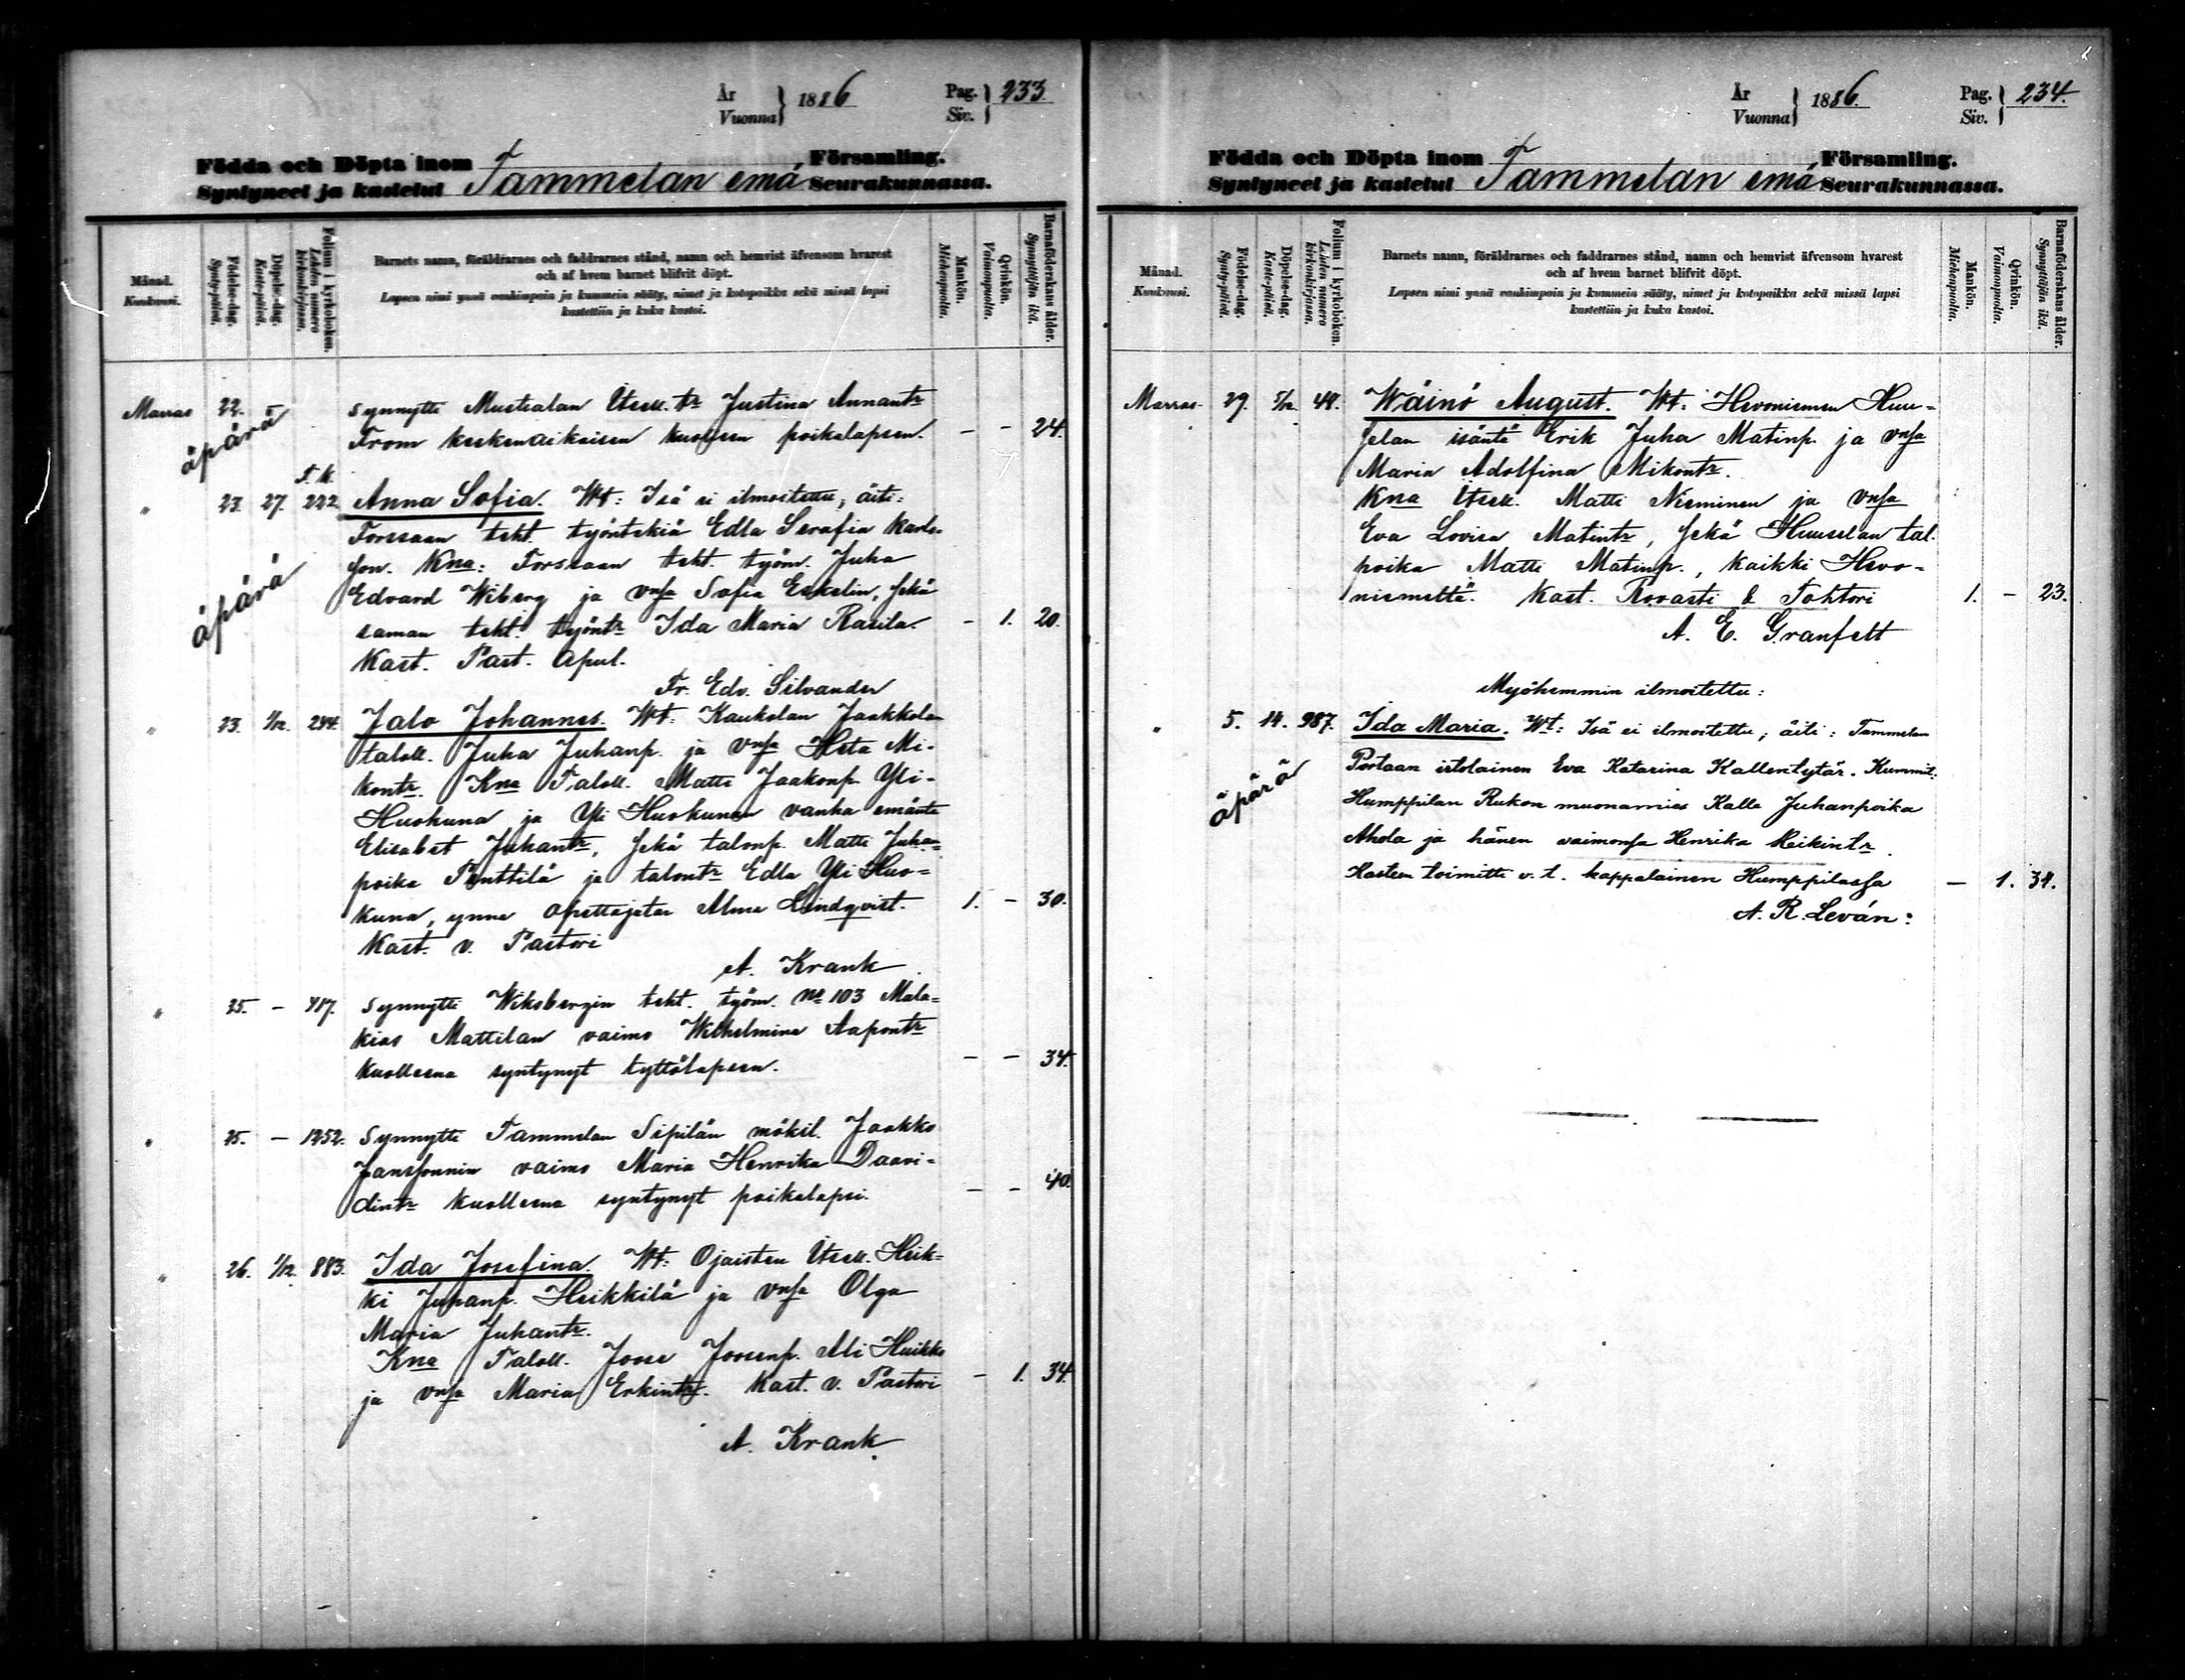 År
Vuonna } 1886
Pag.
Siv. } 233.
Födda och Döpta inom Församling.
Syntyneet ja kastetut Tammelan emä Seurakunnassa.
Månad.
Kuukausi.
Födelse-dag.
Synty-päivä.
Döpelse-dag.
Kaste-päivä.
Folium i kyrkoboken.
Lehden numero kirkonkirjassa.
Barnets namn, föräldrarnes och faddrarnes stånd, namn och hemvist äfvensom hvarest
och af hvem barnet blifvit döpt.
Lapsen nimi ynnä vanhimpain ja kummein sääty, nimet ja kotopaikka sekä missä lapsi
kastettiin ja kuka kastoi.
Mankön.
Miehenpuolia.
Qvinkön.
Vaimonpuolia.
Barnaföderskans ålder.
Synnyttäjän ikä.
Marras 22. – synnytti Mustialan Itsell. tr Justina Annantr
äpärä
From keskenaikaisen kuolleen poikalapsen. – – 24.
F. k.
" 23. 27. 222. Anna Sofia. Wt: Isä ei ilmoitettu, äiti:
Forssaan teht. työntekiä Edla Serafia Karls-
son. Kna: Forssaan teht. työm. Juha
äpärä
Edvard Wiberg ja vnsa Sofia Eskelin, sekä
saman teht. työntr Ida Maria Rasila. – 1. 20.
Kast. Past. Apul.
Fr. Edv. Silvander
" 23. 1/12. 244. Jalo Johannes. Wt: Kaukolan Jaakkolan
taloll. Juha Juhanp. ja vnsa Heta Mi-
kontr. Kna Taloll. Matti Jaakonp. Yli-
Huokuna ja Yli Huokunan vanha emäntä
Elisabet Juhantr, sekä talonp. Matti Juhan-
poika Penttilä ja talontr Edla Yli Huo-
kuna, ynnä opettajatar Alma Lindqvist. 1. – 30.
Kast. v. Pastori
A. Krank
" 25. – 417. Synnytti Wiksbergin teht. työm. No 103 Mala-
kias Mattilan vaimo Wilhelmina Aapontr
kuolleena syntynyt tyttölapsen. – – 34.
" 25. – 1252. Synnytti Tammelan Sipilän mökil. Jaakko
Janssonnin vaimo Maria Henrika Daavi-
dintr kuolleena syntynyt poikalapsi. – – 40.
" 26. 1/12. 883. Ida Josefina. Wt: Ojaisten Itsell. Heik-
ki Juhanp. Heikkilä ja vnsa Olga
Maria Juhantr.
Kna Taloll. Joose Joosenp. Ali Huikko
ja vnsa Maria Erkintr. Kast. v. Pastori – 1. 34.
A. Krank.
År
Vuonna } 1886.
Pag.
Siv. } 234.
Födda och Döpta inom Församling.
Syntyneet ja kastetut Tammelan emä Seurakunnassa.
Månad.
Kuukausi.
Födelse-dag.
Synty-päivä.
Döpelse-dag.
Kaste-päivä.
Folium i kyrkoboken.
Lehden numero kirkonkirjassa.
Barnets namn, föräldrarnes och faddrarnes stånd, namn och hemvist äfvensom hvarest
och af hvem barnet blifvit döpt.
Lapsen nimi ynnä vanhimpain ja kummein sääty, nimet ja kotopaikka sekä missä lapsi
kastettiin ja kuka kastoi.
Mankön.
Miehenpuolia.
Qvinkön.
Vaimonpuolia.
Barnaföderskans ålder.
Synnyttäjän ikä.
Marras. 29. 5/12. 48. Wäinö August. Wt: Hevoniemen Huu-
selan isäntä Erik Juha Matinp. ja vnsa
Maria Adolfina Mikontr.
Kna Itsell. Matti Nieminen ja vnsa
Eva Lovisa Matintr, sekä Huuselan tal.
poika Matti Matinp., kaikki Hevo-
niemeltä. Kast. Rovasti & Tohtori 1. – 23.
A. E. Granfelt
Myöhemmin ilmoitettu:
" 5. 14. 987. Ida Maria. Wt: Isä ei ilmoitettu; äiti: Tammelan
Portaan irtolainen Eva Katarina Kallentytär. Kummit:
äpärä
Humppilan Rukon muonamies Kalle Juhanpoika
Ahola ja hänen vaimonsa Henrika Heikintr.
Kasteen toimitti v. t. kappalainen Humppilassa – 1. 34.
A. R. Leván: